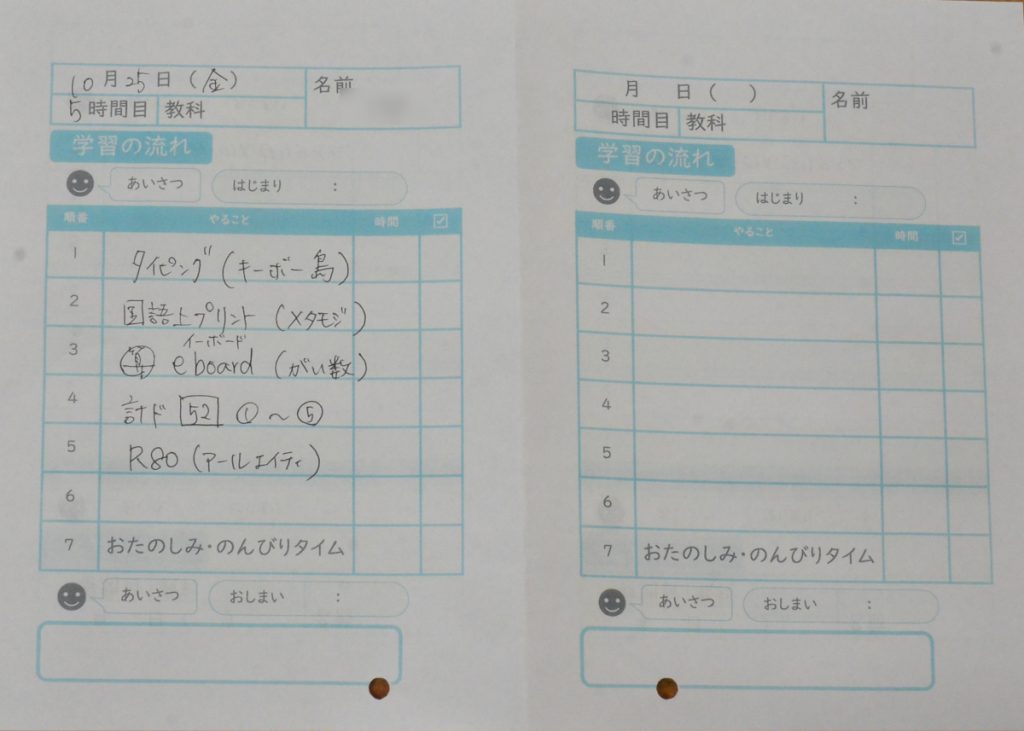 10月25日(金)
名前
5時間目 教科
学習の流れ
あいさつ はじまり :
順番 やること 時間
1 タイピング(キーボー島)
2 国語上プリント(メタモジ)
イーボード
3 算 eboard(がい数)
4 計ド 52 ①〜⑤
5 R80(アールエイティ)
6
7 おたのしみ・のんびりタイム
あいさつ おしまい :
月 日( )
名前
時間目 教科
学習の流れ
あいさつ はじまり :
順番 やること 時間
1
2
3
4
5
6
7 おたのしみ・のんびりタイム
あいさつ おしまい :